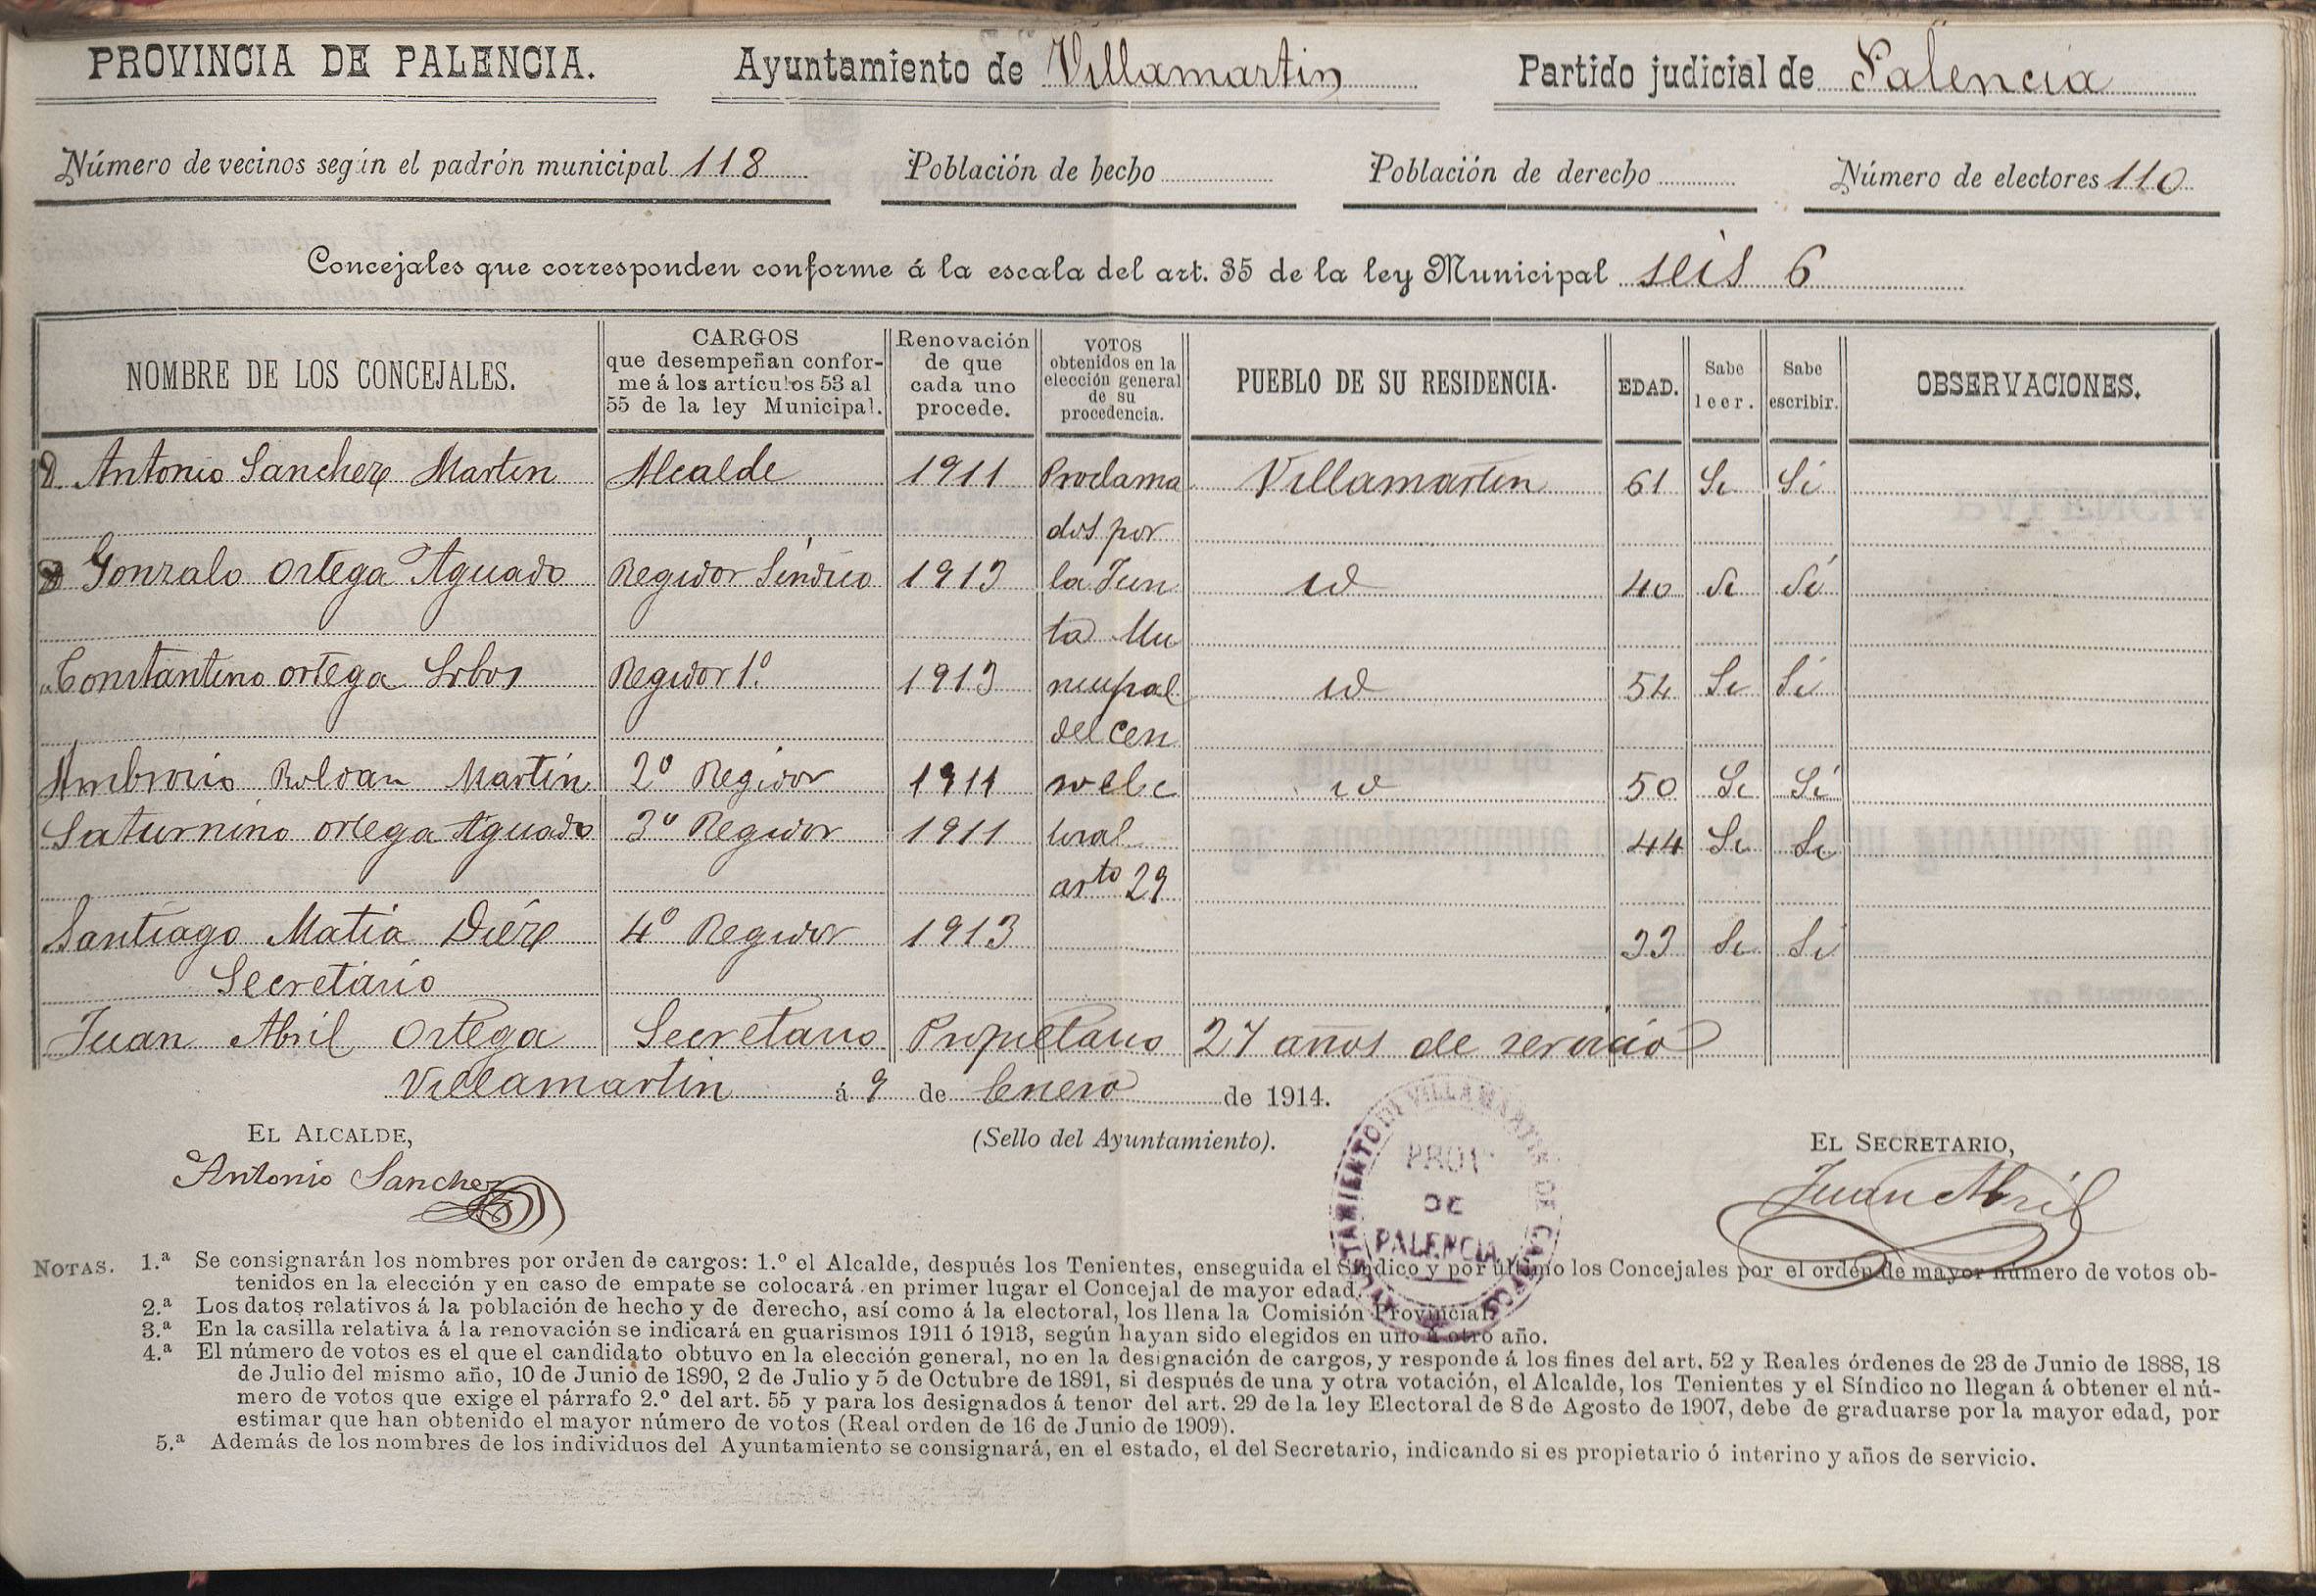 PROVINCIA DE PALENCIA. Ayuntamiento de Villamartin Partido judicial de Palencia
Número de vecinos según el padrón municipal 118 Población de hecho Población de derecho Número de electores 110
Concejales que corresponden conforme á la escala del art. 35 de la ley Municipal seis 6
NOMBRE DE LOS CONCEJALES. CARGOS que desempeñan conforme á los artículos 53 al 55 de la ley Municipal. Renovación de que cada uno procede. VOTOS obtenidos en la elección general de su procedencia. PUEBLO DE SU RESIDENCIA. EDAD. Sabe leer. Sabe escribir. OBSERVACIONES.
D. Antonio Sanchez Martin Alcalde 1911 Proclama Villamartin 61 Si Si
dos por
Gonzalo Ortega Aguado Regidor Sindico 1913 la Jun id 40 Si Si
ta Mu
" Constantino Ortega Regidor 1º 1913 nicipal id 54 Si Si
del cen
Ambrosio Roldan Martin 2º Regidor 1911 so elec id 50 Si Si
Saturnino Ortega Aguado 3º Regidor 1911 toral 44 Si Si
arto 29
Santiago Matia Diez 4º Regidor 1913 33 Si Si
Secretario
Juan Abril Ortega Secretario Propietario 27 años de servicio
Villamartin á 9 de Enero de 1914.
EL ALCALDE, (Sello del Ayuntamiento). EL SECRETARIO,
Antonio Sanchez Juan Abril
AYUNTAMIENTO DE VILLAMARTIN DE CAMPOS
PROVª
DE
PALENCIA
NOTAS. 1.ª Se consignarán los nombres por orden de cargos: 1.º el Alcalde, después los Tenientes, enseguida el Síndico y por último los Concejales por el orden de mayor número de votos ob-
tenidos en la elección y en caso de empate se colocará en primer lugar el Concejal de mayor edad.
2.ª Los datos relativos á la población de hecho y de derecho, así como á la electoral, los llena la Comisión Provincial.
3.ª En la casilla relativa á la renovación se indicará en guarismos 1911 ó 1913, según hayan sido elegidos en uno ú otro año.
4.ª El número de votos es el que el candidato obtuvo en la elección general, no en la designación de cargos, y responde á los fines del art. 52 y Reales órdenes de 23 de Junio de 1888, 18
de Julio del mismo año, 10 de Junio de 1890, 2 de Julio y 5 de Octubre de 1891, si después de una y otra votación, el Alcalde, los Tenientes y el Síndico no llegan á obtener el nú-
mero de votos que exige el párrafo 2.º del art. 55 y para los designados á tenor del art. 29 de la ley Electoral de 8 de Agosto de 1907, debe de graduarse por la mayor edad, por
estimar que han obtenido el mayor número de votos (Real orden de 16 de Junio de 1909).
5.ª Además de los nombres de los individuos del Ayuntamiento se consignará, en el estado, el del Secretario, indicando si es propietario ó interino y años de servicio.